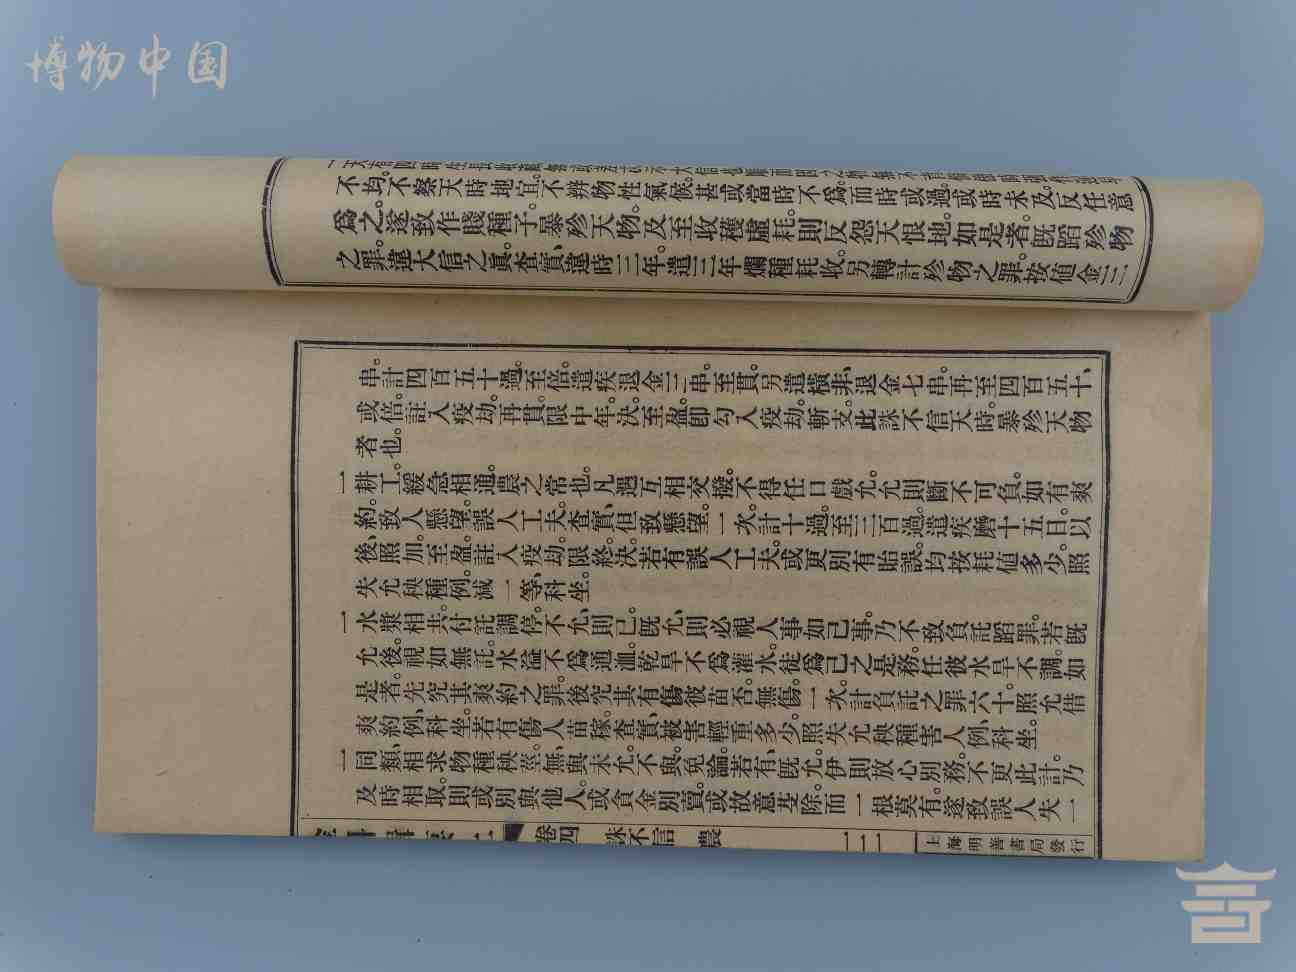 博物中国
不均。不察天時地宜。不辨物性氣候。甚或當時不爲。而時或過。或時未及。反任意
爲之。遂致作賤種子。暴殄天物。及至收穫虛耗。則反怨天恨地。如是者。既蹈殄物
之罪。違大信之真。查實、違時二年。遣三年爛種耗收。另轉計殄物之罪。按值金三
串。計四百五十過。至倍。遣疾退金二串。至貫。另遣橫非、退金七串。再至四百五十、
或倍。註入疫劫。再貫。限中年。決。至盈卽勾入疫劫。斬支。此誅不信天時。暴殄天物
者也。
一耕工。緩急相通。農之常也。凡遇互相交撥。不得任口戲允。允則斷不可負。如有爽
約。致人懸望。誤人工夫。查實、但致懸望。一次、計十過。至三百過。遣疾磨十五日。以
後、照加。至盈。註入疫劫、限終決。若有誤人工夫。或更別有貽誤。均按耗值多少。照
失允秧種例。減一等、科坐。
一水漿相共。付託調停。不允、則已。既允、則必視人事如己事。乃不致負託蹈罪。若既
允後。視如無託。水溢不爲通洫。乾旱不爲灌水。徒爲己之是務。任彼水旱不調。如
是者。先究其爽約之罪。後究其有傷彼苗否。無傷。一次、計負託之罪六十。照允借
爽約例、科坐。若有傷人苗稼。查實、被害輕重多少。照失允秧種害人例、科坐。
一同類、相求物種秧莖。無、與未允。不與。免論。若有、既允。伊則放心別務。不更此計。乃
及時相取。則或別與他人。或貪金別賣。或故意芟除。而一根莫有。遂致誤人失一
卷四
誅不信
農
二二
上海明善書局發行